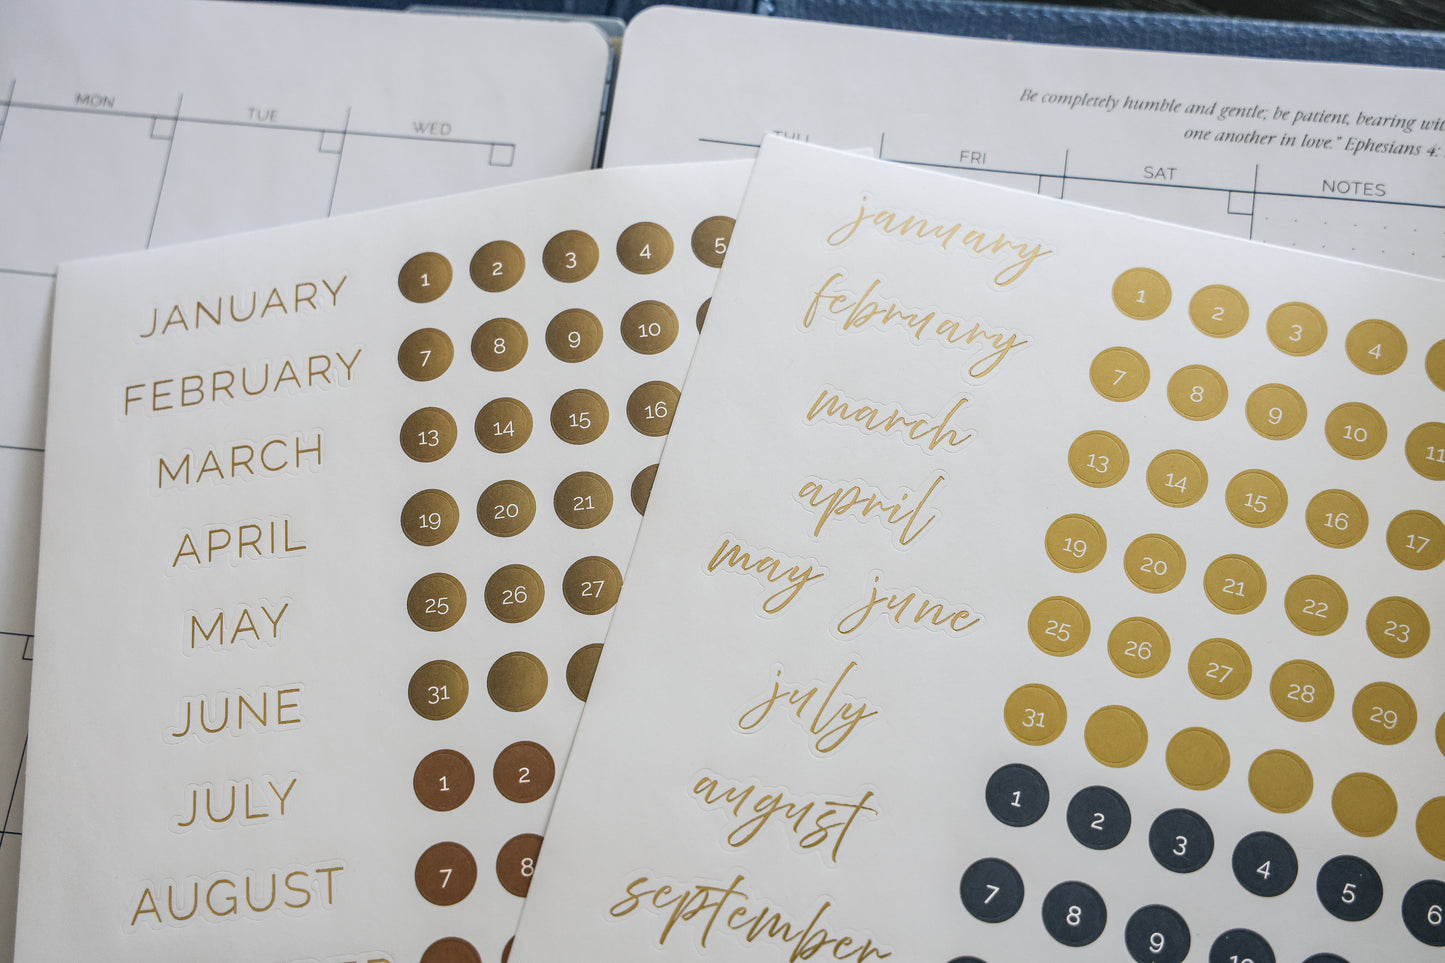 MON TUE WED
Be completely humble and gentle; be patient, bearing
one another in love." Ephesians 4:
THU FRI SAT NOTES
JANUARY 1 2 3 4 5
FEBRUARY 7 8 9 10
MARCH 13 14 15 16
APRIL 19 20 21
MAY 25 26 27
JUNE 31
JULY 1 2
AUGUST 7 8
january 1 2 3 4
february 7 8 9 10 11
march 13 14 15 16 17
april 19 20 21 22 23
may june 25 26 27 28 29
july 31
august 1 2 3 4 5 6
september 7 8 9 10